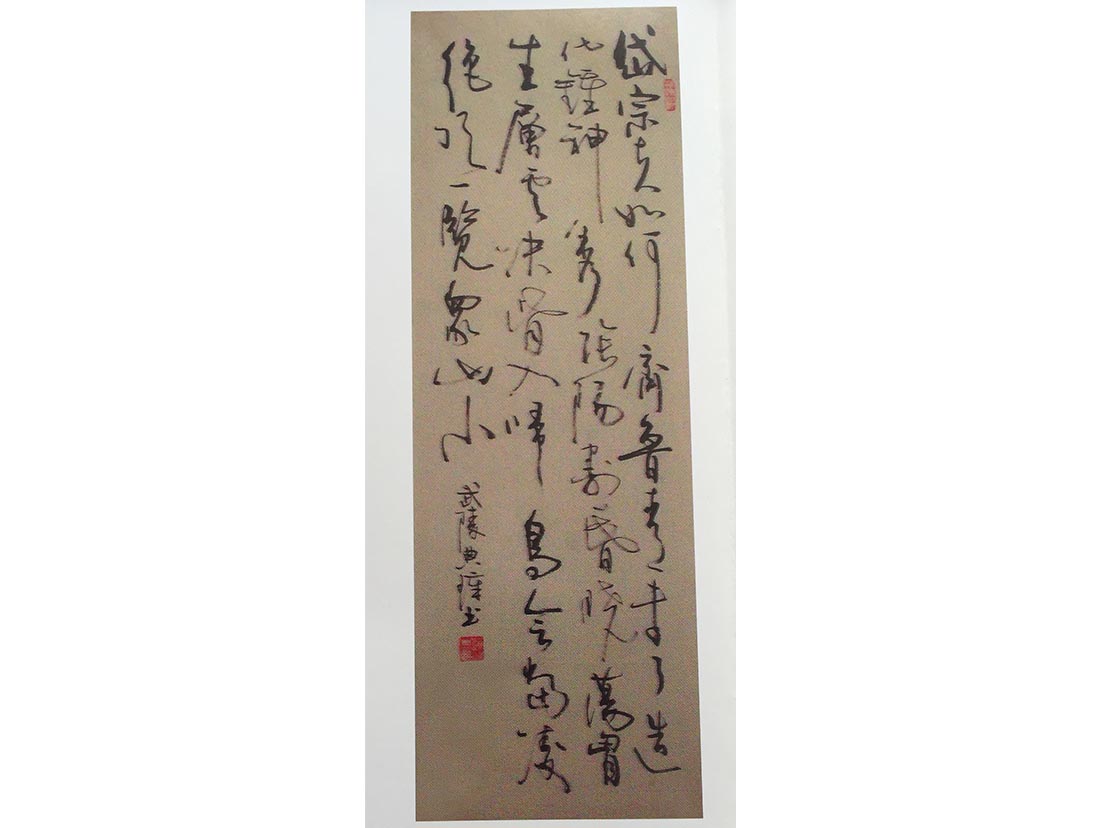 岱宗夫如何齊魯青未了造
化鍾神秀陰陽割昏曉蕩胷
生層雲決眥入歸鳥會當凌
絕頂一覽眾山小
武陵典璋书